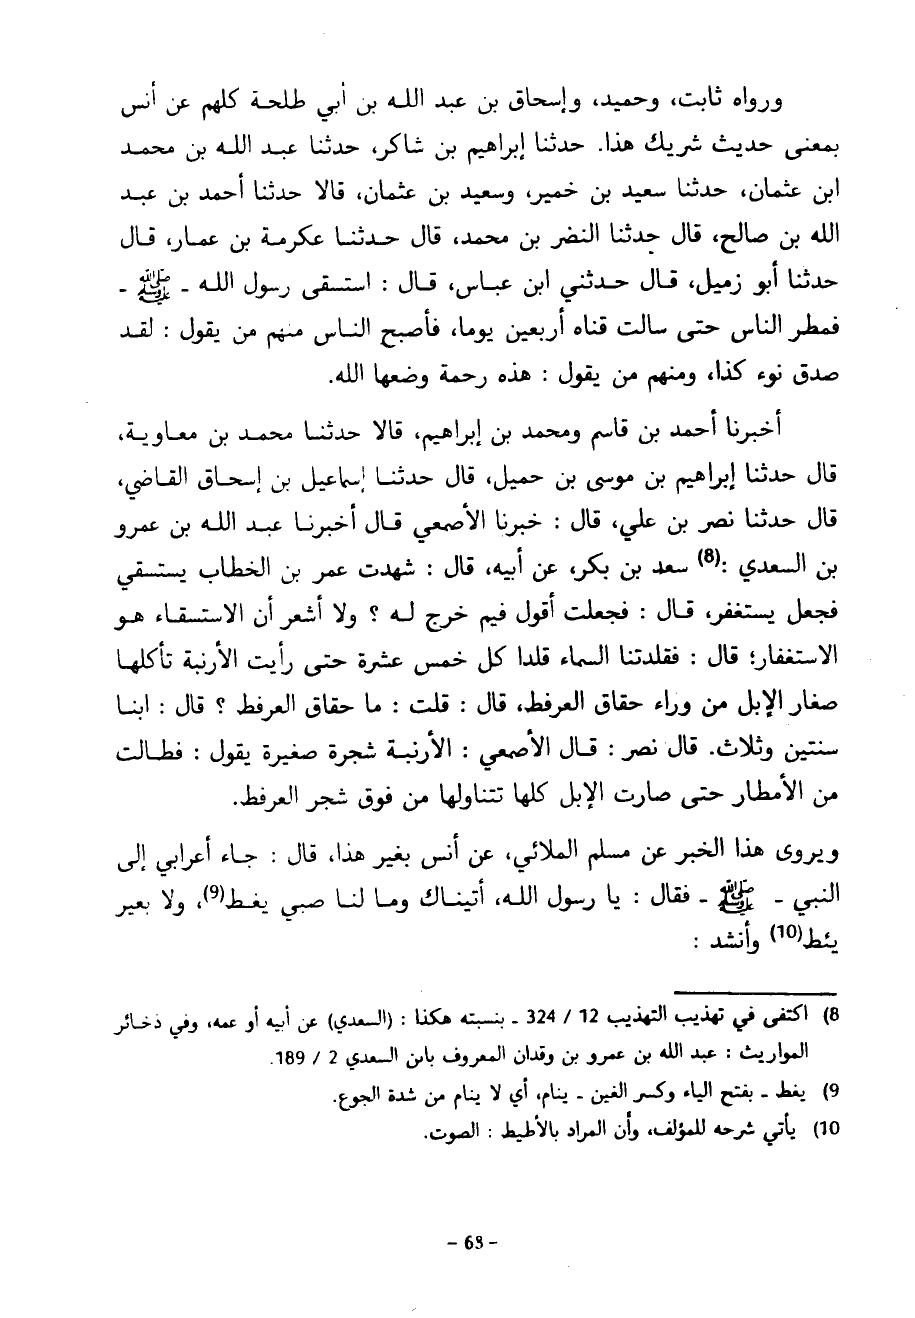 ورواه ثابت، وحميد، وإسحاق بن عبد الله بن أبي طلحة كلهم عن أنس
بمعنى حديث شريك هذا. حدثنا إبراهيم بن شاكر، حدثنا عبد الله بن محمد
ابن عثمان، حدثنا سعيد بن خمير، وسعيد بن عثمان، قالا حدثنا أحمد بن عبد
الله بن صالح، قال حدثنا النضر بن محمد، قال حدثنا عكرمة بن عمار، قال
حدثنا أبو زميل، قال حدثني ابن عباس، قال : استسقى رسول الله - ﷺ -
فمطر الناس حتى سالت قناه أربعين يوما، فأصبح الناس منهم من يقول : لقد
صدق نوء كذا، ومنهم من يقول : هذه رحمة وضعها الله.
أخبرنا أحمد بن قاسم ومحمد بن إبراهيم، قالا حدثنا محمد بن معاوية،
قال حدثنا إبراهيم بن موسى بن حميل، قال حدثنا إسماعيل بن إسحاق القاضي،
قال حدثنا نصر بن علي، قال : خبرنا الأصمعي قال أخبرنا عبد الله بن عمرو
بن السعدي :(8) سعد بن بكر، عن أبيه، قال : شهدت عمر بن الخطاب يستسقي
فجعل يستغفر، قال : فجعلت أقول فيم خرج له ؟ ولا أشعر أن الاستسقاء هو
الاستغفار؛ قال : فقلدتنا السماء قلدا كل خمس عشرة حتى رأيت الأرنبة تأكلها
صغار الإبل من وراء حقاق العرفط، قال : قلت : ما حقاق العرفط ؟ قال : ابنا
سنتين وثلاث. قال نصر : قال الأصمعي : الأرنبة شجرة صغيرة يقول : فطالت
من الأمطار حتى صارت الإبل كلها تتناولها من فوق شجر العرفط.
ويروى هذا الخبر عن مسلم الملائي، عن أنس بغير هذا، قال : جاء أعرابي إلى
النبي - ﷺ - فقال : يا رسول الله، أتيناك وما لنا صبي يغط(9)، ولا بعير
يئط(10) وأنشد :
8) اكتفى في تهذيب التهذيب 12 / 324 - بنسبته هكذا : (السعدي) عن أبيه أو عمه، وفي ذخائر
المواريث : عبد الله بن عمرو بن وقدان المعروف بابن السعدي 2 / 189.
9) يغط - بفتح الياء وكسر الغين - ينام، أي لا ينام من شدة الجوع.
10) يأتي شرحه للمؤلف، وأن المراد بالأطيط : الصوت.
- 68 -